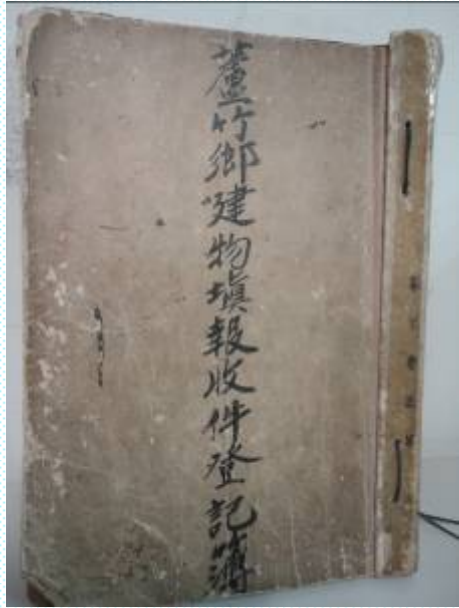 蘆竹鄉建物填報收件登記簿